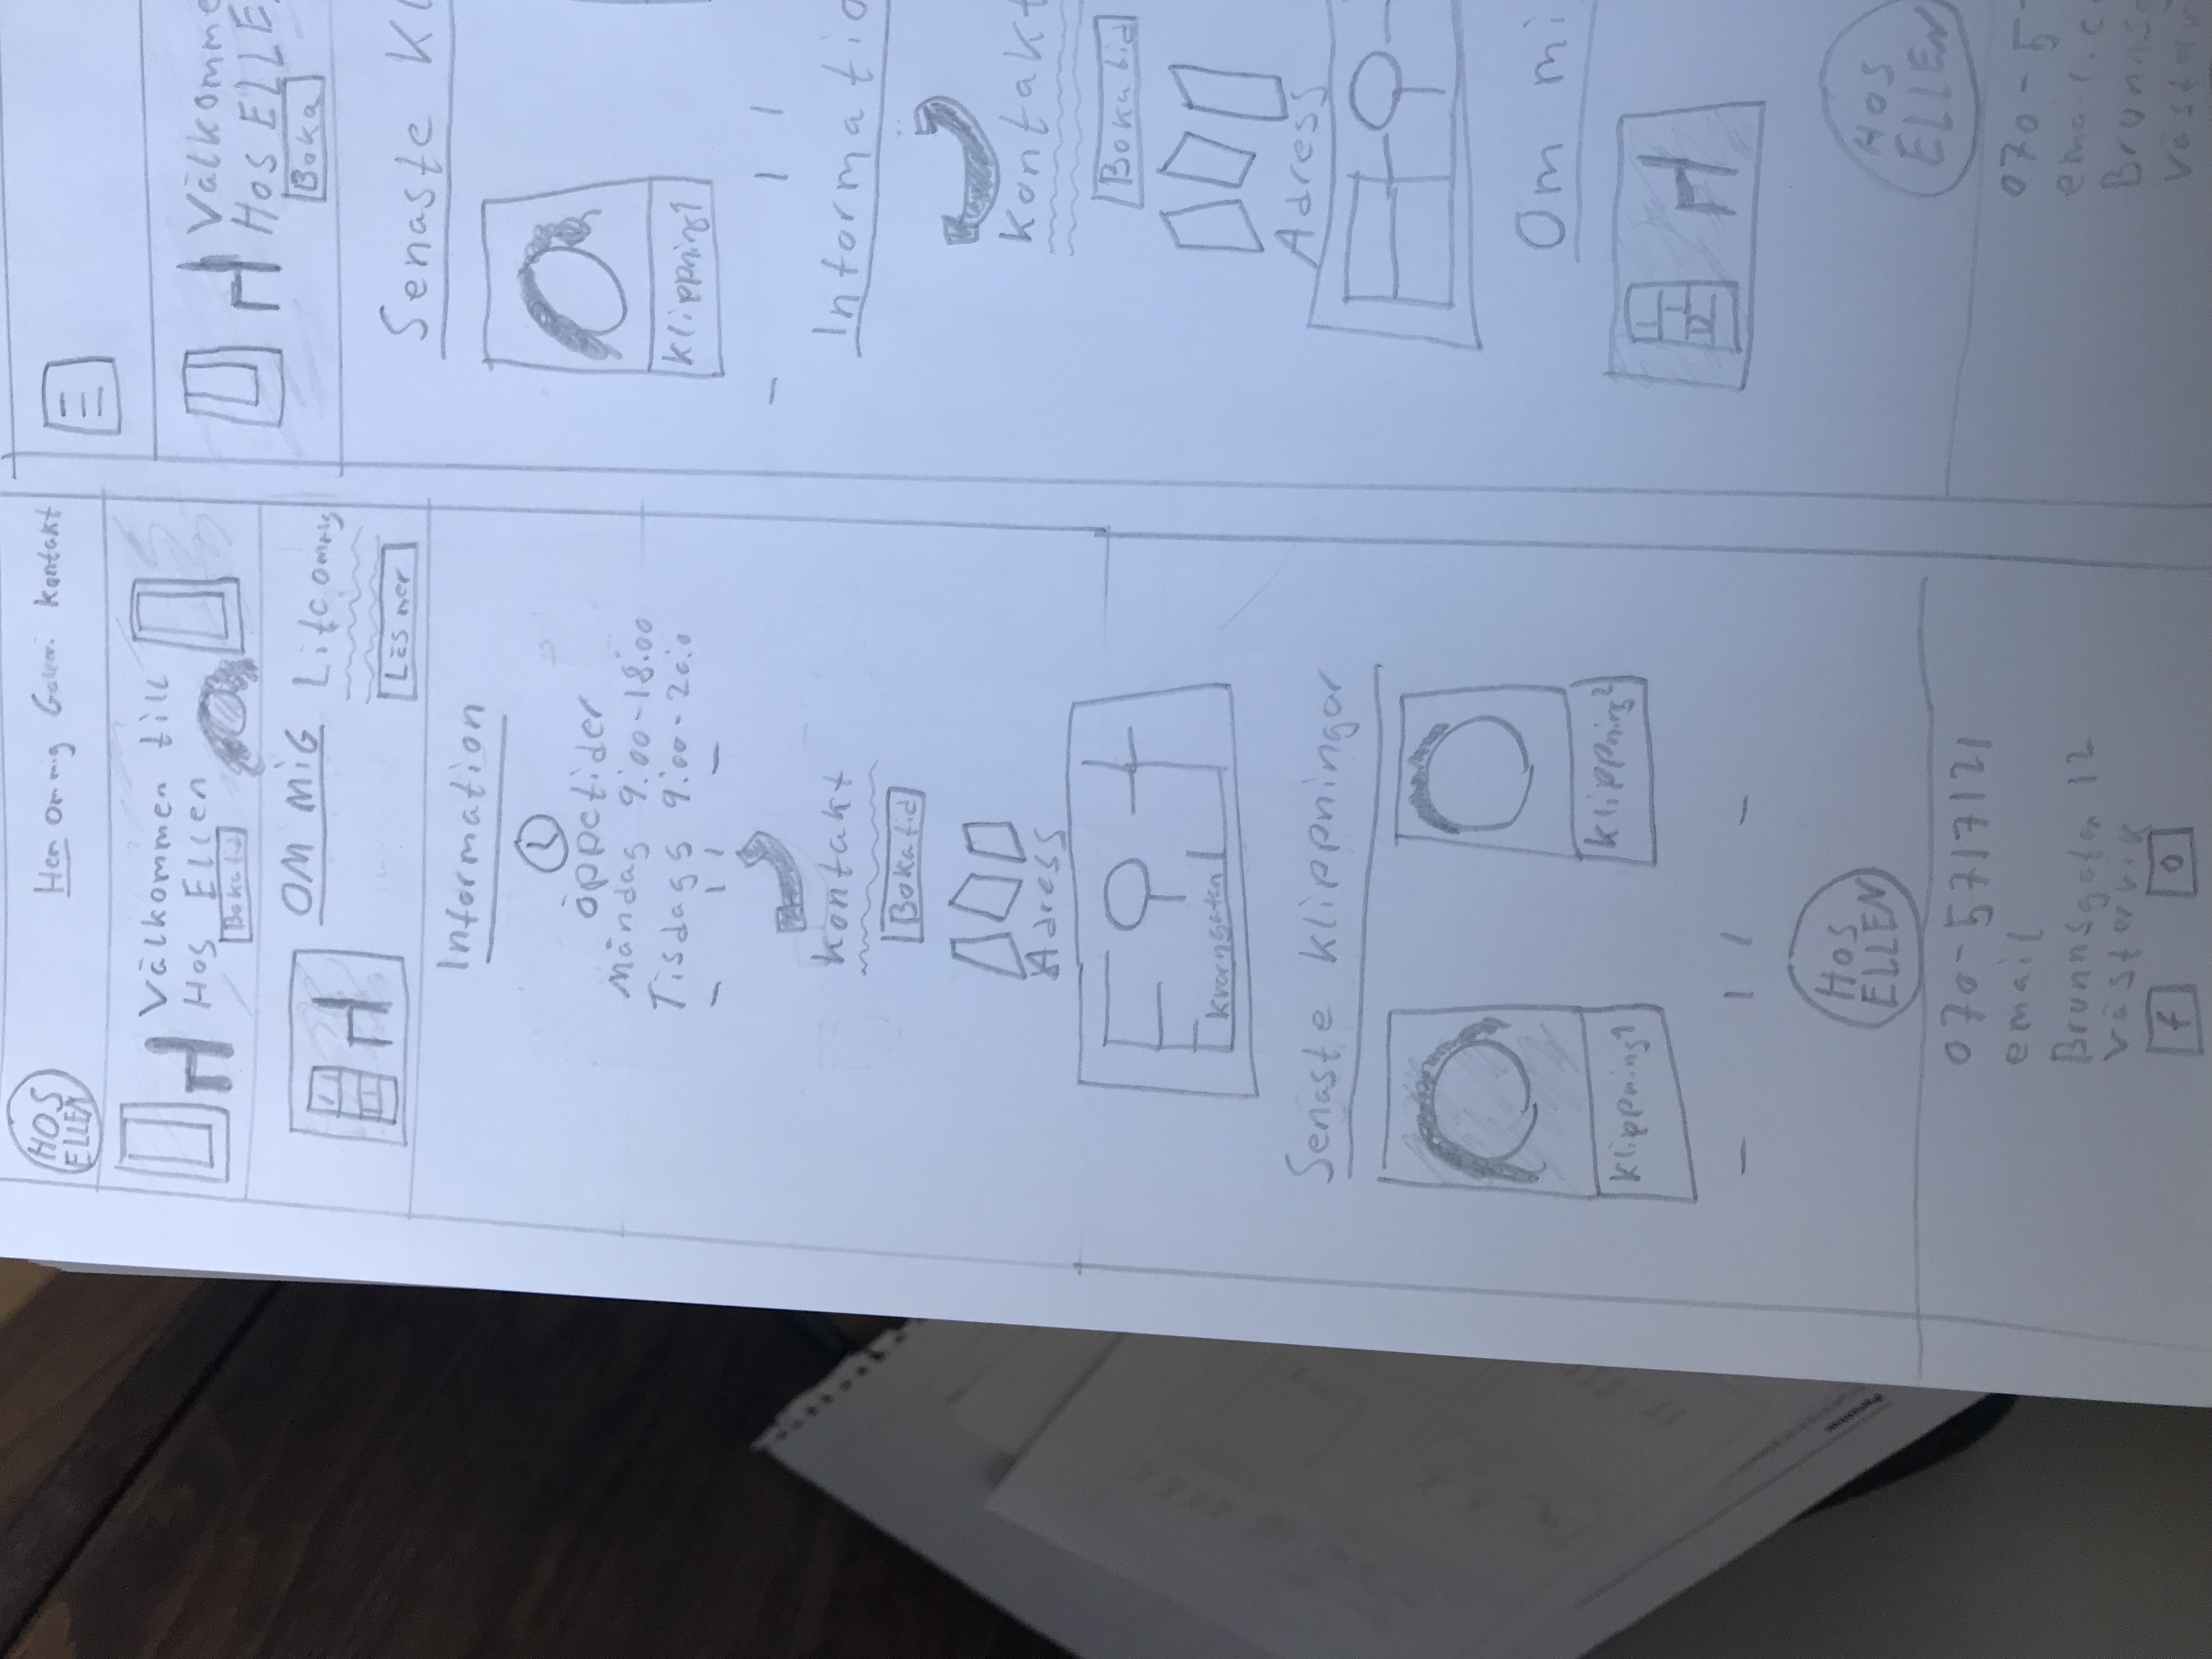 HOS
ELLEN
Hem om mig Galleri kontakt
Välkommen till
Hos Ellen
Boka tid
OM MiG
Lite om mig
Läs mer
Information
öppetider
Måndag 9:00-18:00
Tisdags 9:00-20:0
Kontakt
Boka tid
Adress
Kvarngatan
Senaste klippningar
Klippning1
Klippning2
HOS
ELLEN
070-5717121
email
Brunnsgatan 12
västervik
f
o
Välkomme
Hos ELLE
Boka
Senaste Kl
Klippning1
Informatio
Kontakt
Boka tid
Adress
Om mi
HOS
ELLEN
070-5
email.c
Brunnsg
väster